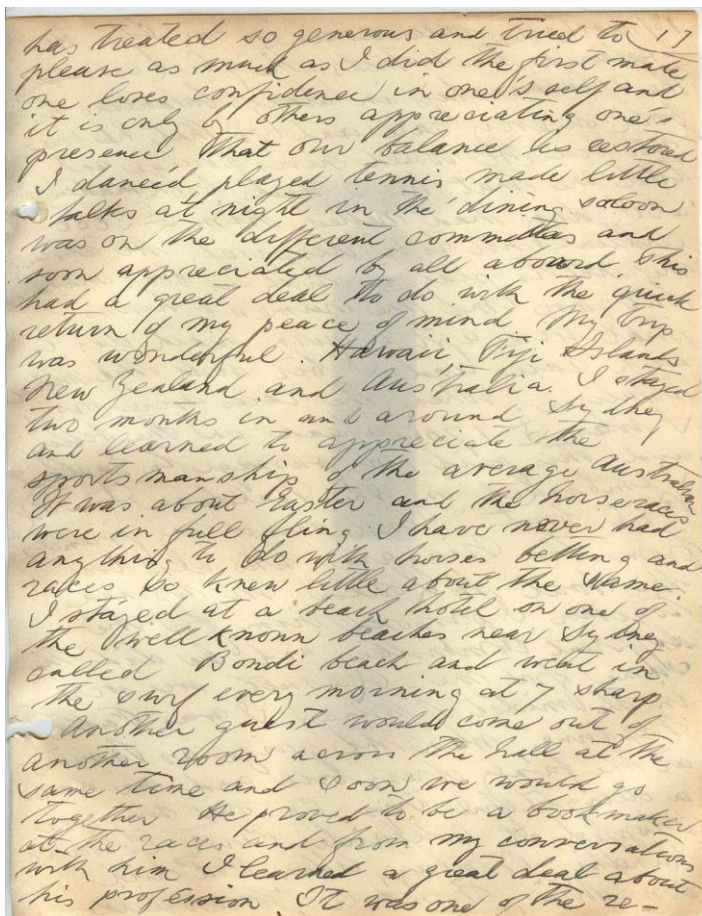 has treated so generous and tried to 17
please as much as I did the first mate
one loses confidence in one's self and
it is only by others appreciating one's
presence that our balance is restored
I danced played tennis made little
talks at night in the dining saloon
was on the different committees and
soon appreciated by all aboard this
had a great deal to do with the quick
return of my peace of mind My trip
was wonderful. Hawaii, Fiji Islands,
New Zealand and Australia. I stayed
two months in and around Sydney
and learned to appreciate the
sportsmanship of the average Australian
It was about Easter and the horseraces
were in full fling I have never had
anything to do with horses betting and
races so knew little about the same.
I stayed at a beach hotel on one of
the well known beaches near Sydney
called Bondi beach and went in
the surf every morning at 7 sharp
Another guest would come out of
another room across the hall at the
same time and soon we would go
together He proved to be a bookmaker
at the races and from my conversations
with him I learned a great deal about
his profession. It was one of the re-